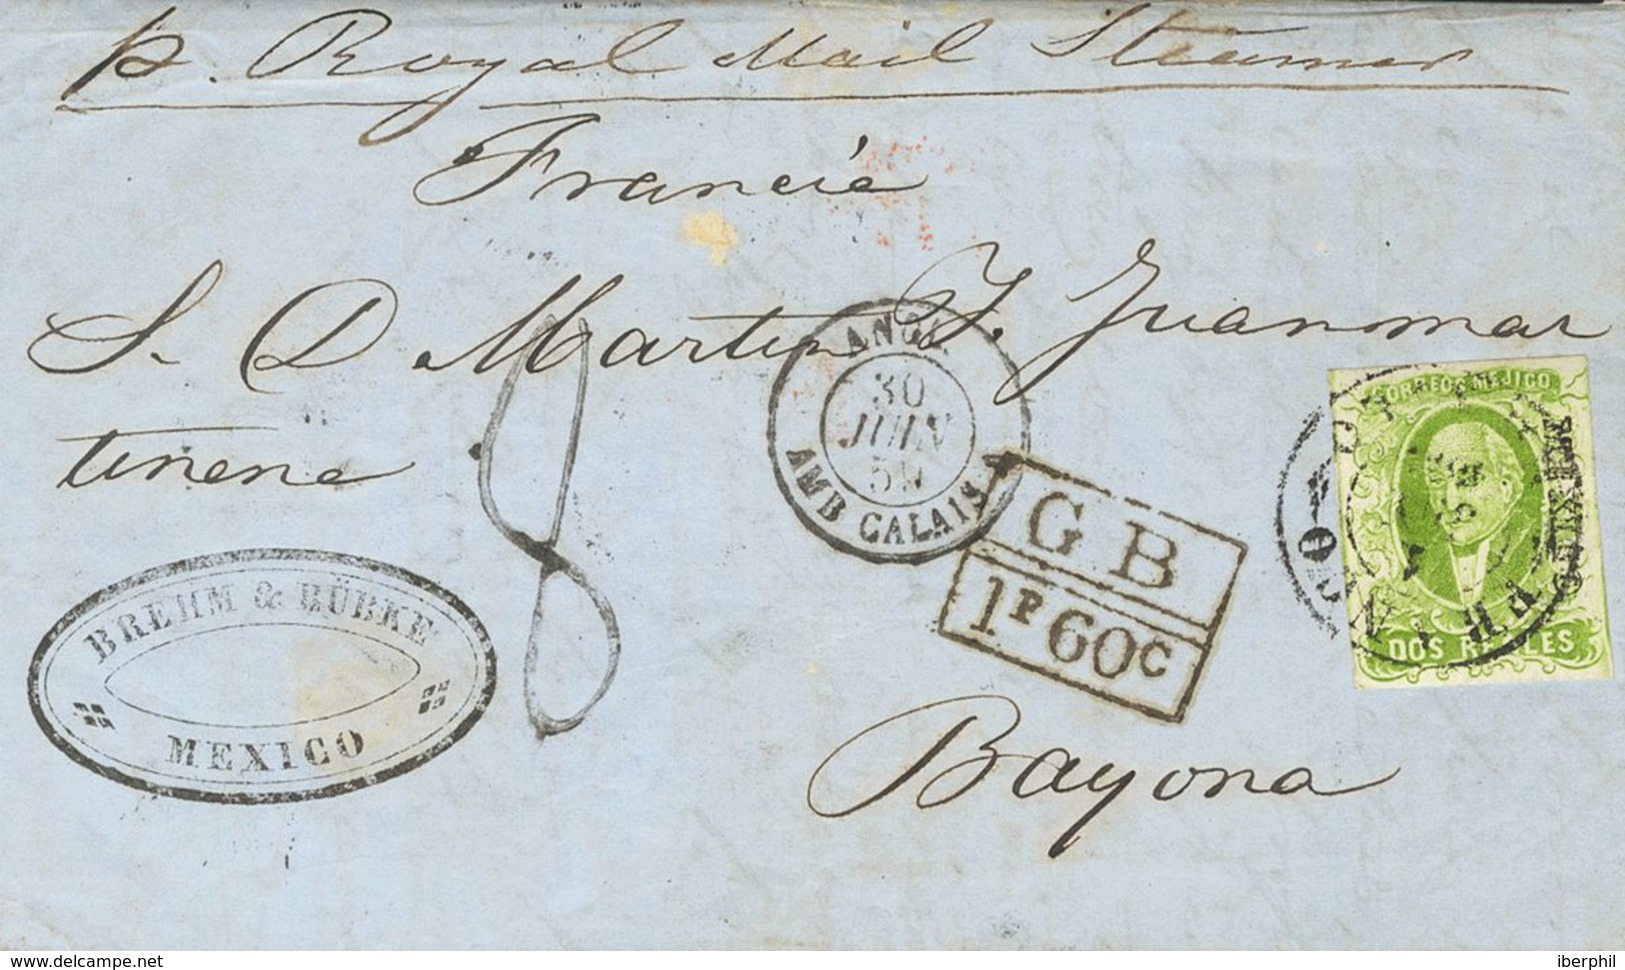 p. Royal Mail Steamer
Francia
S. D. Martin J. Juanmar
tinena
8
ANGL.
30
JUIN
59
AMB. CALAIS
GB
1F60C
CORREOS MEJICO
DOS REALES
FRANCO
MEXICO
BREHM & RÜBKE
MEXICO
Bayona
www.delcampe.net
iberphil